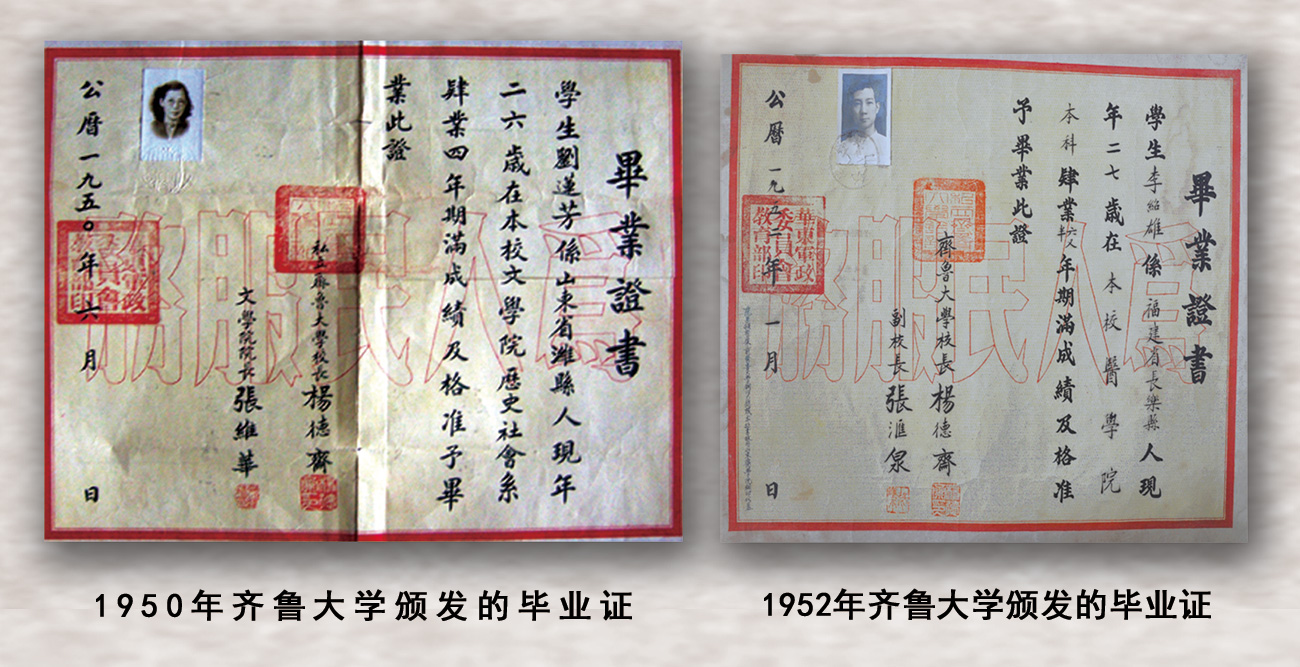 畢業證書
學生劉蓮芳係山東省濰縣人現年
二六歲在本校文學院歷史社會系
肄業四年期滿成績及格准予畢
業此證
私立齊魯大學校長楊德齋
文學院院長張維華
公曆一九五〇年六月 日
為人民服務
畢業證書
學生李紹雄係福建省長樂縣人現
年二七歲在本校醫學院
本科肄業六年期滿成績及格准
予畢業此證
齊魯大學校長楊德齋
副校長張滙泉
公曆一九五二年一月 日
華東軍政委員會教育部印
為人民服務
1950年齐鲁大学颁发的毕业证
1952年齐鲁大学颁发的毕业证